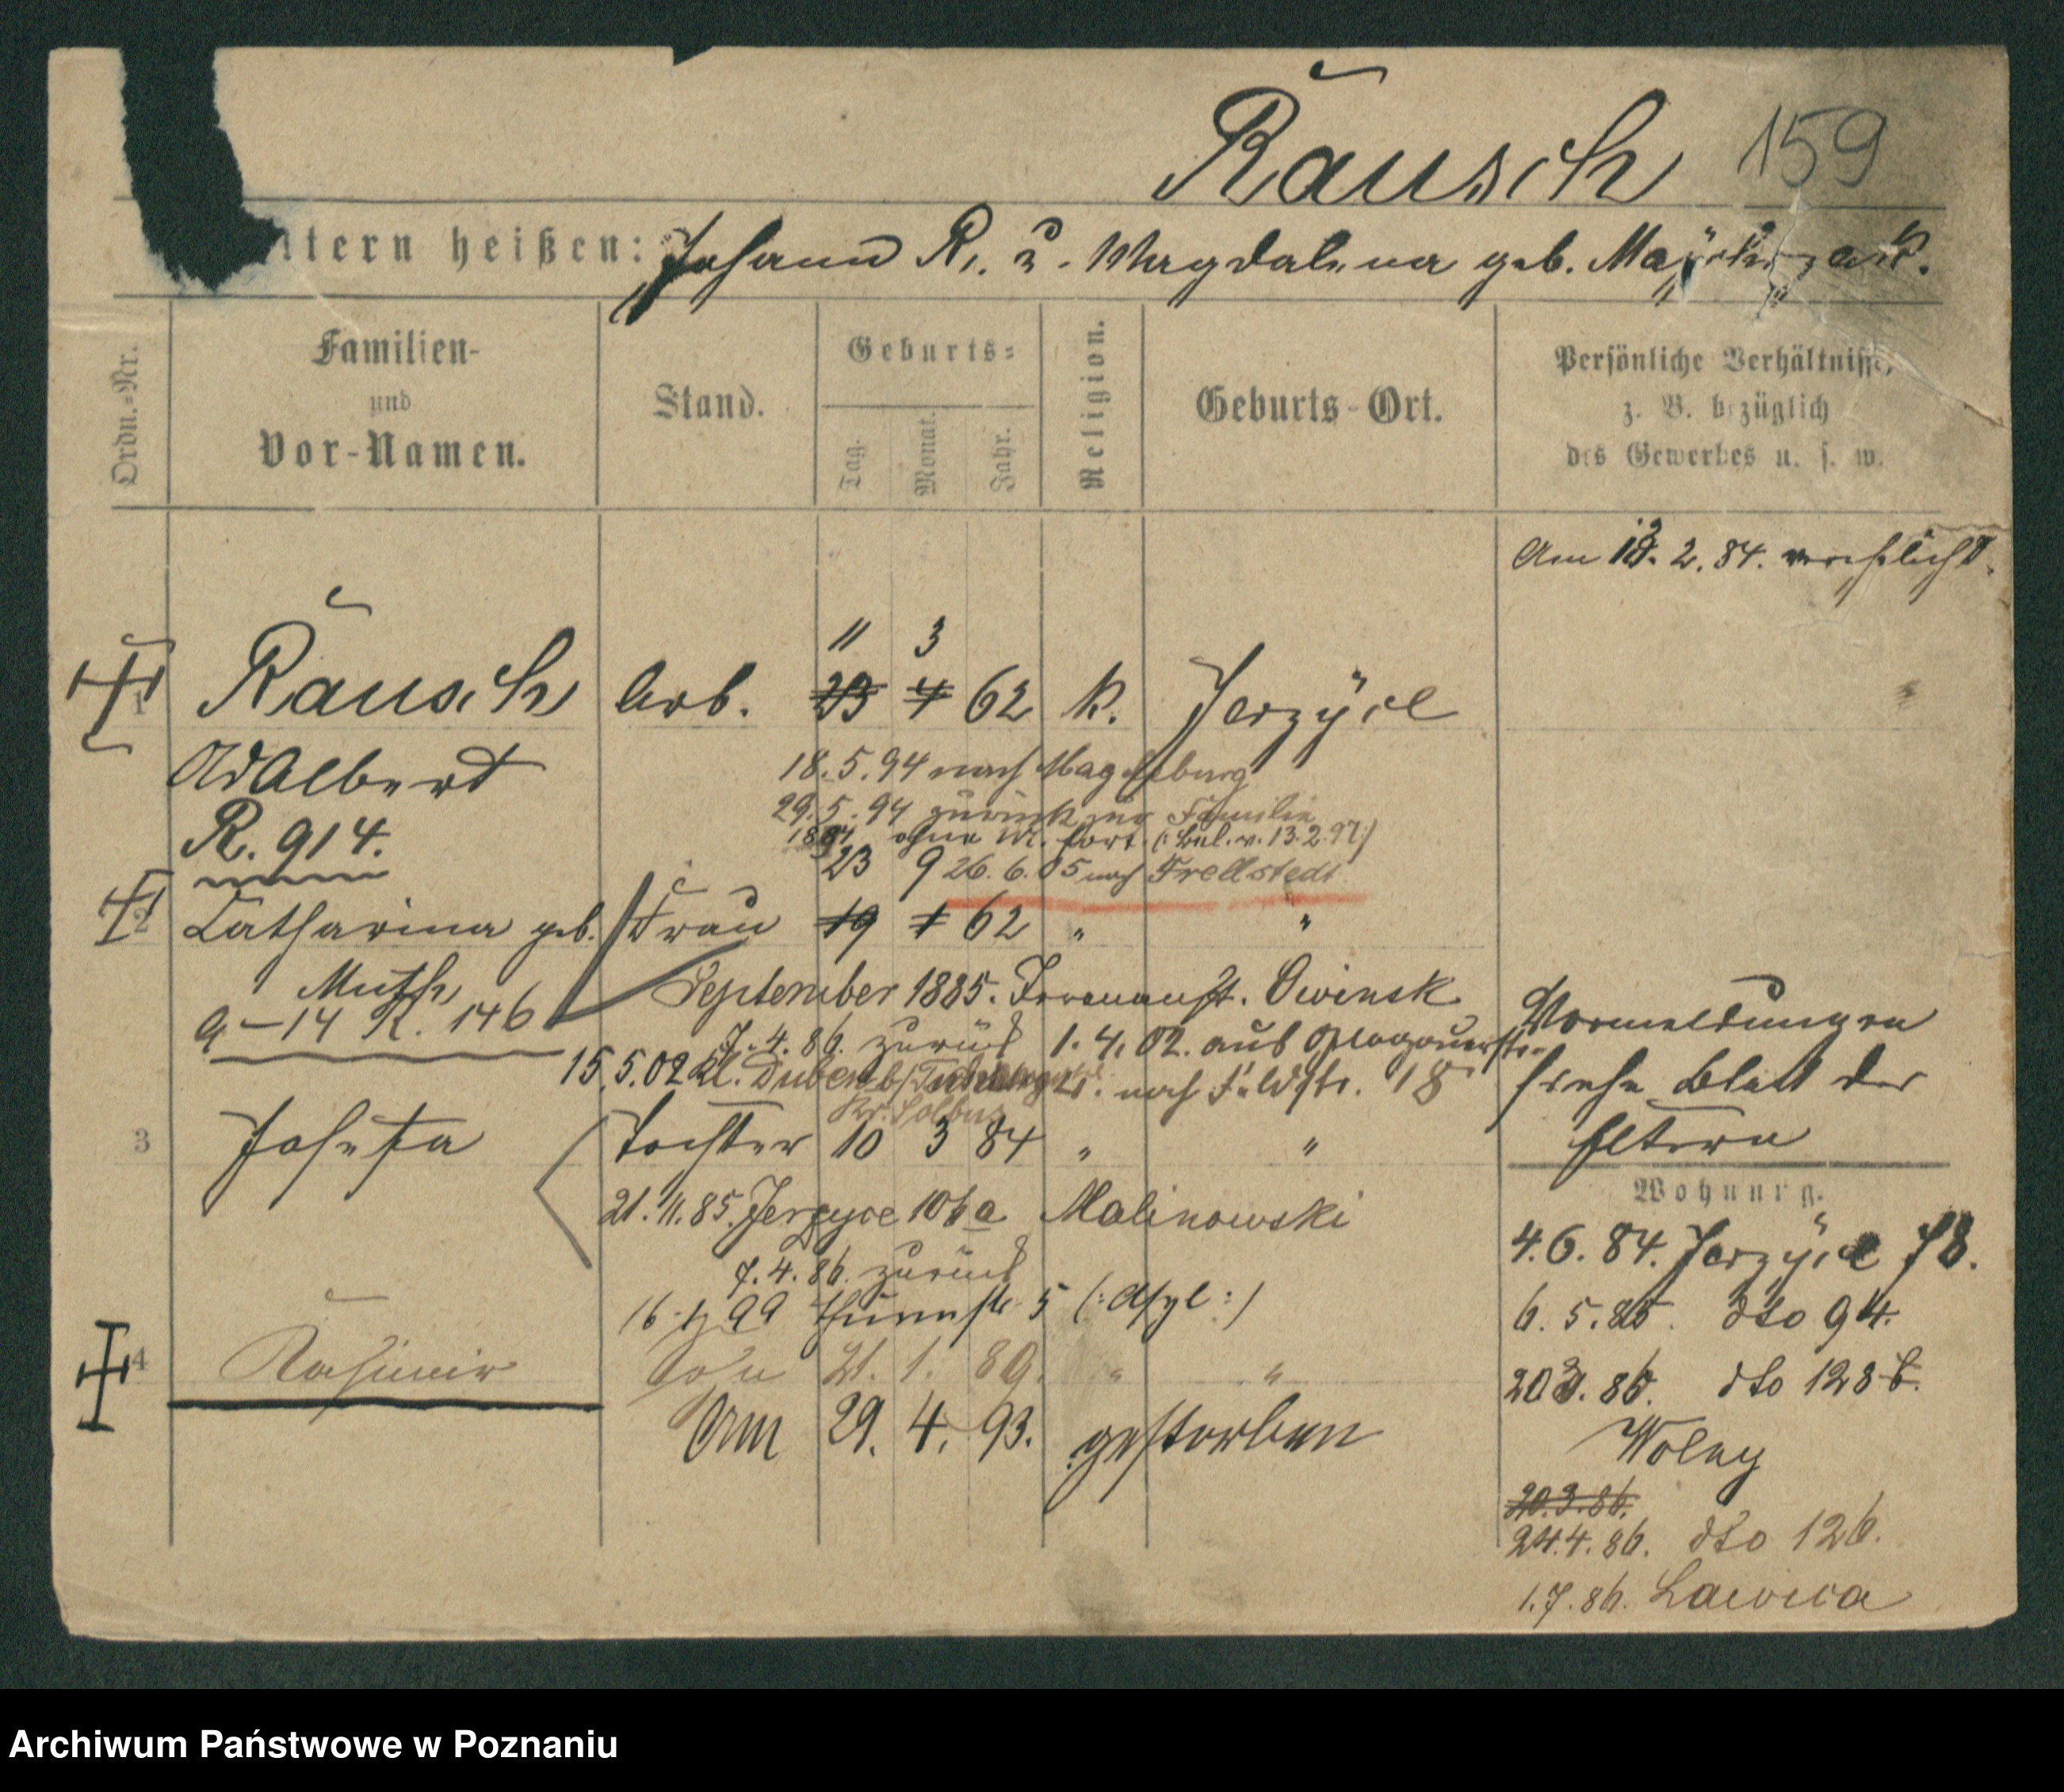 Rausch 159
ltern heißen: Johann R. u. Magdalena geb.
Ordn.-Nr.
Familien-
und
Vor-Namen.
Stand.
Geburts-
Tag. Monat. Jahr.
Religion.
Geburts-Ort.
Persönliche Verhältnisse,
z. B. bezüglich
des Gewerbes u. s. w.
Am 13. 2. 84. verehelicht.
11 3
1 Rausch Arb. 23 4 62 k. Jerzyce
Adalbert
18. 5. 94 nach Magdeburg
29. 5. 94 zurück zur Familie
R. 914.
ohne M. fort (: Bel. v. 13. 2. 97 :)
23 9 26. 6. 05 nach Frellstedt
2 Catharina geb. Frau 19 1 62 " "
Muth
9-14 K. 146
September 1885. Irrenanst. Owinsk
7. 4. 86. zurück 1. 4. 02. aus Glogauerstr.
15. 5. 02 Kl. Duben b/ nach Feldstr. 18
Vormeldungen
siehe Blatt der
Eltern
3 Josefa Tochter 10 3 84 " "
21. 11. 85. Jerzyce 106a Malinowski
7. 4. 86. zurück
16 99 Thurmstr. 5 (: Asyl :)
4 Kasimir Sohn 21. 1. 89. " "
Am 29. 4. 93. gestorben
Wohnung.
4. 6. 84. Jerzyce 78.
6. 5. 85. dto 94.
20 3. 86. dto 128 b.
Wolny
20. 3. 86.
24. 4. 86. dto 126.
1. 7. 86. Lawica
Archiwum Państwowe w Poznaniu